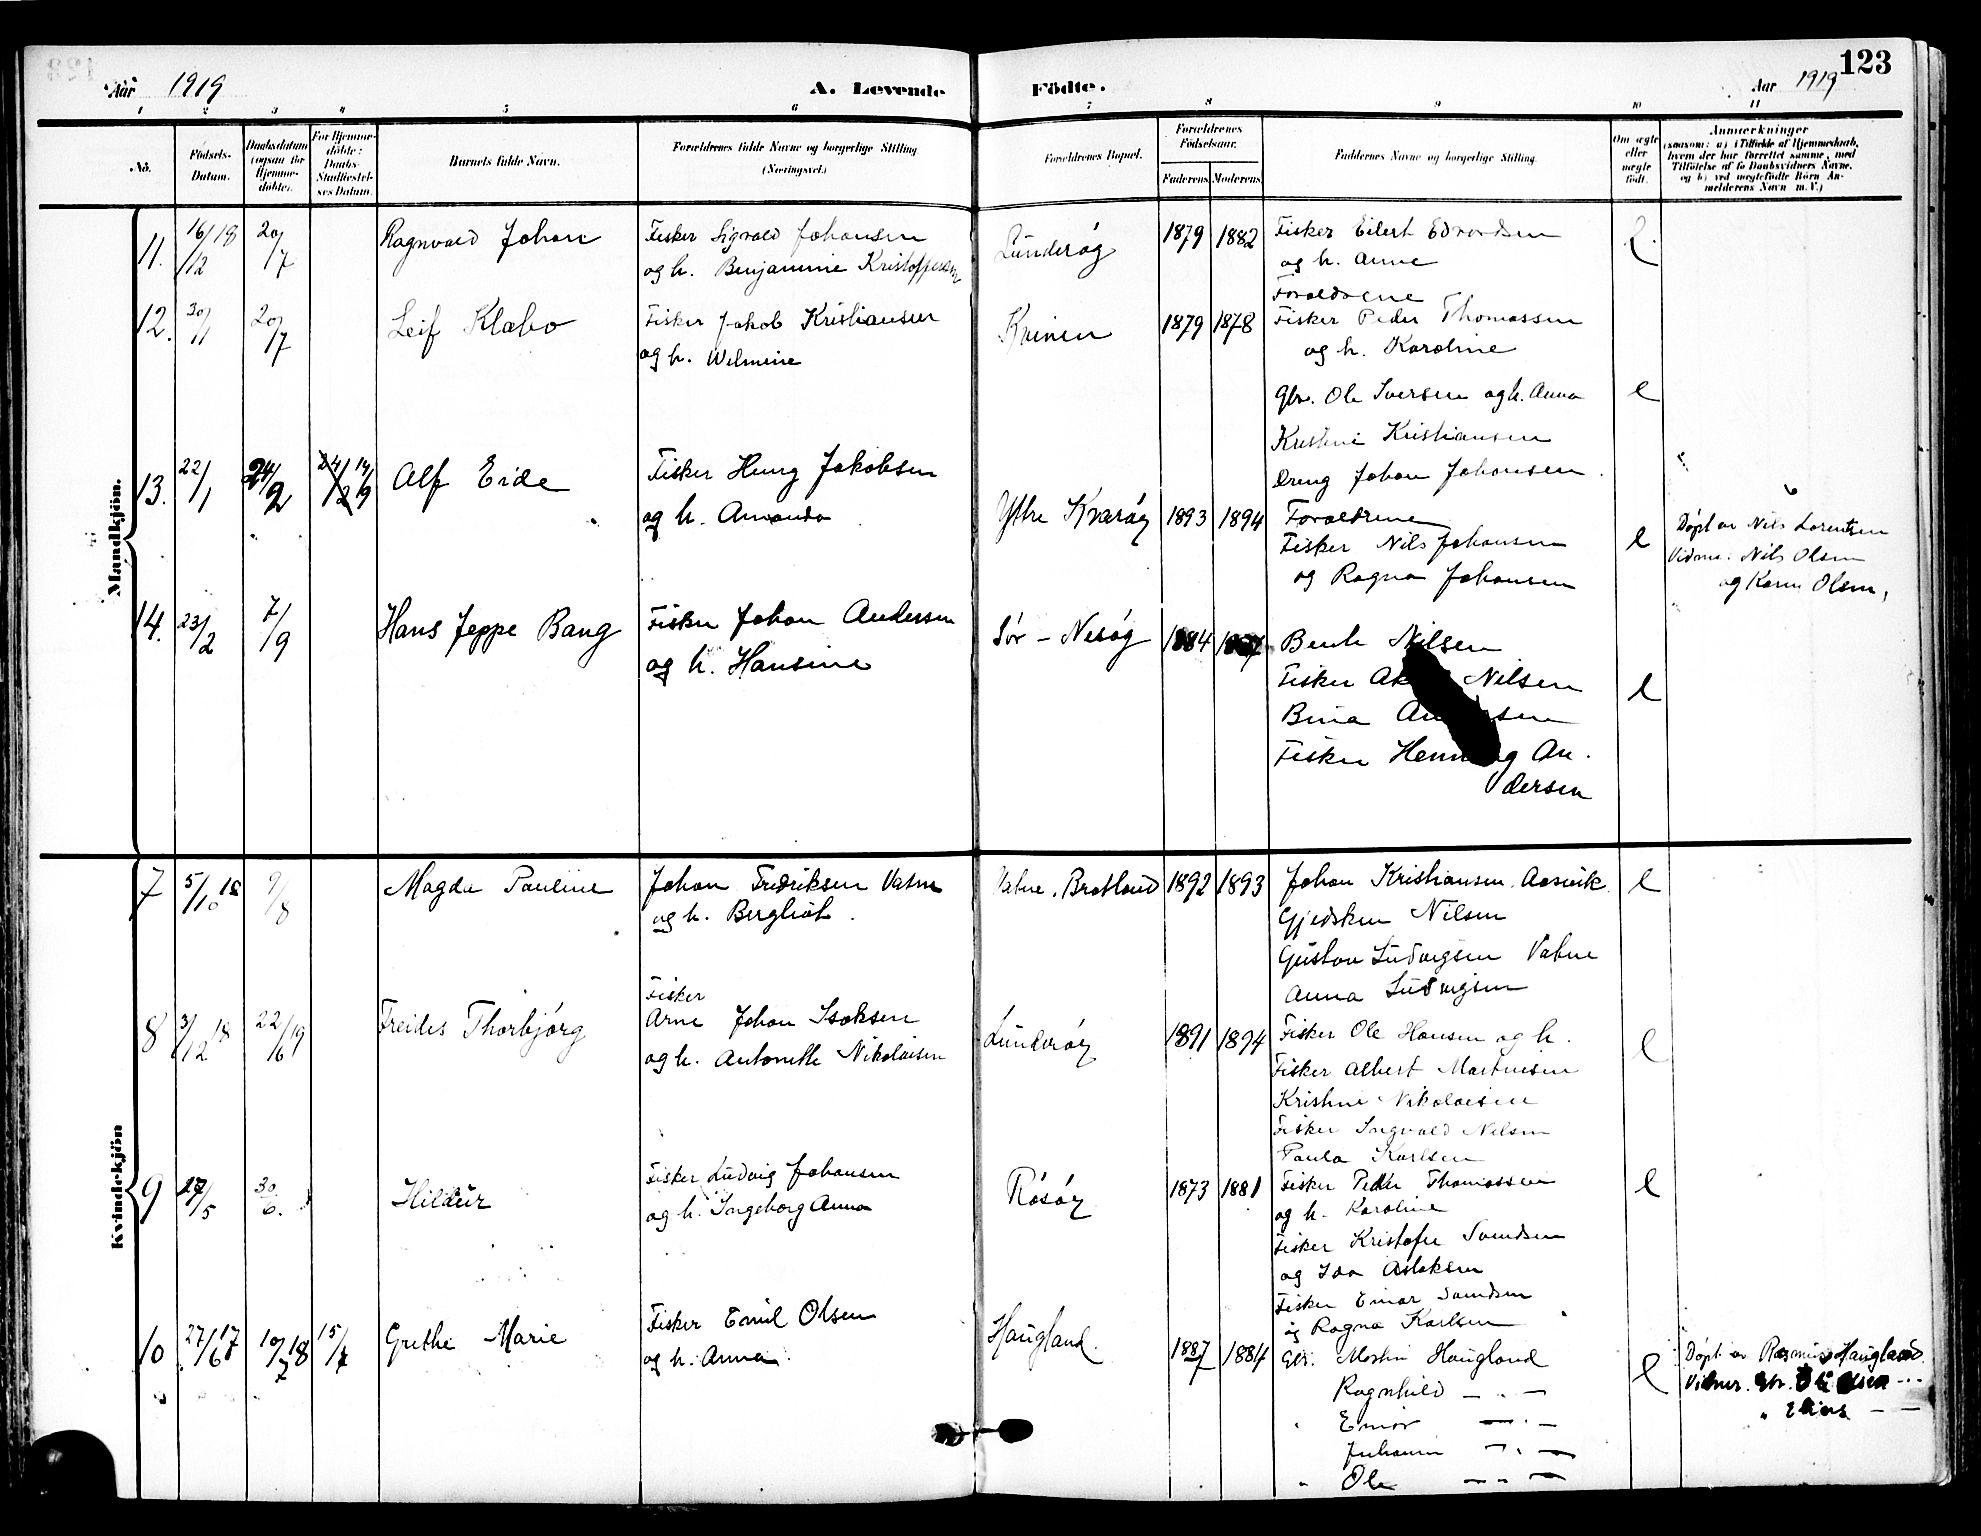 123
Aar 1919 A. Levende Födte. Aar 1919
1 2 3 4 5 6 7 8 9 10 11
No. Födsels-Datum. Daabsdatum (ogsaa for Hjemmedöbte). For Hjemmedöbte: Daabs-Stadfæstelses Datum. Barnets fulde Navn. Forældrenes fulde Navne og borgerlige Stilling (Næringsvei.) Forældrenes Bopæl. Forældrenes Födselsaar. Faderens Moderens Faddernes Navne og borgerlige Stilling. Om ægte eller uægte födt. Anmærkninger (saasom: a) i Tilfælde af Hjemmedaab, hvem der har forrettet samme, med Tilföielse af to Daabsvidners Navne, og b) ved uægtefödte Börn Anmelderens Navn m. V.)
Mandkjön.
11. 16/12 18 20/7 Ragnvald Johan Fisker Sigvald Johansen Lunderøy 1879 1882 Fisker Eilert Edvardsen
og h. Benjamine Kristoffersen og h. Anne
Forældrene
12. 30/1 20/7 Leif Klabo Fisker Jakob Kristiansen Kvinen 1879 1878 Fisker Peder Thomassen
og h. Welmine og h. Karoline
Gbr. Ole Iversen og h. Anna e
Kristine Kristiansen
Dreng Johan Johansen
13. 22/1 24/2 24/2 14/9 Alf Eide Fisker Henry Jakobsen
og h. Amanda Ytre Kvarøy 1893 1894 Forældrene
Fisker Nils Johansen e Døpt av Nils Lorentsen
og Ragna Johansen Vidner. Nils Olsen
og Karen Olsen,
14. 23/2 7/9 Hans Jeppe Bang Fisker Johan Andersen Sør - Nesøy 1884 Berit Nilsen
og h. Hansine Fisker Nilsen e
Bina
Fisker Henning An-
dersen
Kvindekjön
7 5/10 18 9/8 Magda Pauline Johan Fredriksen Vatne Vatne. Bratland 1892 1893 Johan Kristiansen Aasvik e
og h. Bergliot. Gjedsken Nilsen
Gustav Ludvigsen Vatne
Anna Ludvigsen
8 3/12 18 22/6 19 Freidis Thorbjørg Fisker
Arne Johan Isaksen Lunderøy 1891 1894 Fisker Ole Hansen og h. e
og h. Antonette Nikolaisen Fisker Albert Martinsen
Kristine Nikolaisen
Fisker Ingvald Nilsen
Paula Karlsen
9 /5 30/6. Hildur Fisker Ludvig Johansen Røsøy 1873 1881 Fisker Peder Thomassen e
og h. Ingeborg Anna og h. Karoline
Fisker Kristofer Svendsen
og Ida Aslaksen
Fisker Einar Svendsen
og Ragna Karlsen
10 27/6 17 10/7 18 15/7 Grethe Marie Fisker Emil Olsen Haugland. 1887 1884 Gbr. Martin Haugland e Døpt av Rasmus Haugland.
og h. Anna. Ragnhild — „ — Vidner. Gbr. Olsen
Einar — „ — „ Elias — —
Johann — „ —
„ Ole — „ —